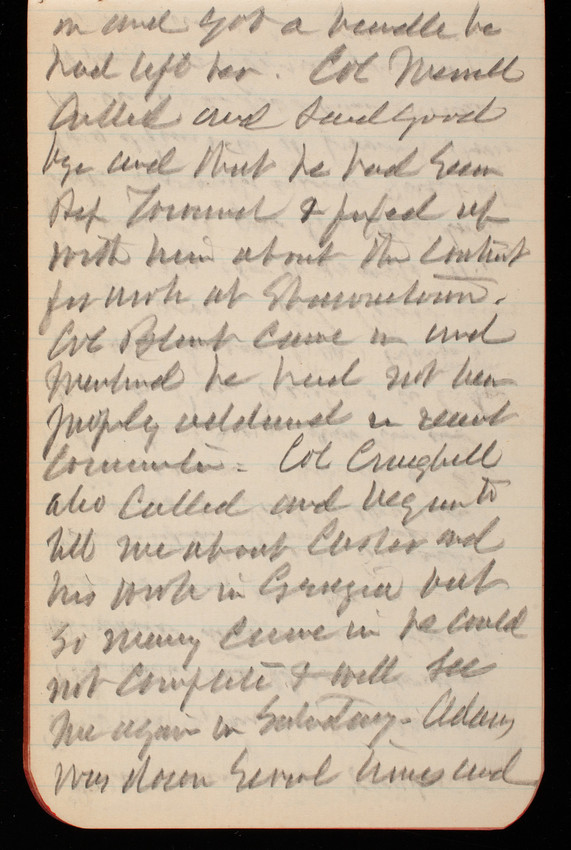 in and got a bundle he
had left here. Col Merrill
Called and said good
bye and that he had seen
Rep & fixed up
with him about the Contract
for work at
Col Blunt came in and
he had not been
properly addressed in recent
Col Craighill
also Called and began to
tell me about Carter and
his work in Georgia but
so many came in he could
not complete & will see
me again on Saturday. Adams
was down several times and